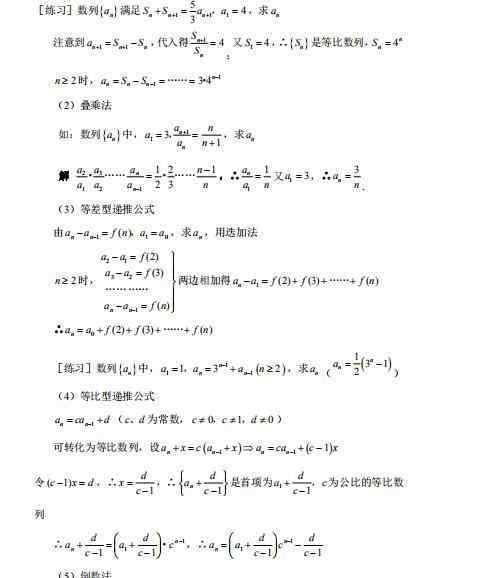 ［练习］数列{aₙ}满足 Sₙ + Sₙ₊₁ = 5/3 aₙ₊₁, a₁ = 4，求aₙ
注意到 aₙ₊₁ = Sₙ₊₁ − Sₙ，代入得 Sₙ₊₁/Sₙ = 4；又 S₁ = 4，∴{Sₙ}是等比数列，Sₙ = 4ⁿ
n ≥ 2 时，aₙ = Sₙ − Sₙ₋₁ = …… = 3·4ⁿ⁻¹
（2）叠乘法
如：数列{aₙ}中，a₁ = 3, aₙ₊₁/aₙ = n/(n+1)，求aₙ
解 a₂/a₁ · a₃/a₂ …… aₙ/aₙ₋₁ = 1/2 · 2/3 …… (n−1)/n，∴ aₙ/a₁ = 1/n 又a₁ = 3，∴aₙ = 3/n.
（3）等差型递推公式
由aₙ − aₙ₋₁ = f(n), a₁ = a₀，求aₙ，用迭加法
n ≥ 2 时，
a₂ − a₁ = f(2)
a₃ − a₂ = f(3)
…… ……
aₙ − aₙ₋₁ = f(n)
} 两边相加得 aₙ − a₁ = f(2) + f(3) + …… + f(n)
∴aₙ = a₀ + f(2) + f(3) + …… + f(n)
［练习］数列{aₙ}中，a₁ = 1, aₙ = 3ⁿ⁻¹ + aₙ₋₁ (n ≥ 2)，求aₙ（aₙ = 1/2(3ⁿ − 1)）
（4）等比型递推公式
aₙ = caₙ₋₁ + d（c、d 为常数，c ≠ 0, c ≠ 1, d ≠ 0）
可转化为等比数列，设aₙ + x = c(aₙ₋₁ + x) ⇒ aₙ = caₙ₋₁ + (c − 1)x
令(c−1)x = d，∴x = d/(c−1)，∴{aₙ + d/(c−1)}是首项为a₁ + d/(c−1), c为公比的等比数
列
∴aₙ + d/(c−1) = (a₁ + d/(c−1))·cⁿ⁻¹，∴aₙ = (a₁ + d/(c−1))cⁿ⁻¹ − d/(c−1)
（5）倒数法